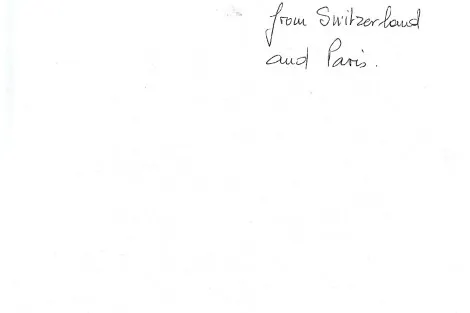 from Switzerland
and Paris.